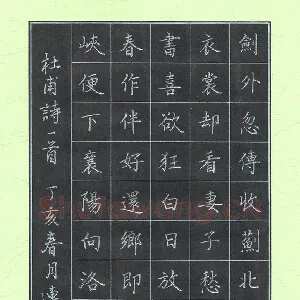 劍外忽傳收薊北
衣裳却看妻子愁
書喜欲狂白日放
春作伴好還鄉即
峽便下襄陽向洛
杜甫詩一首 丁亥春月